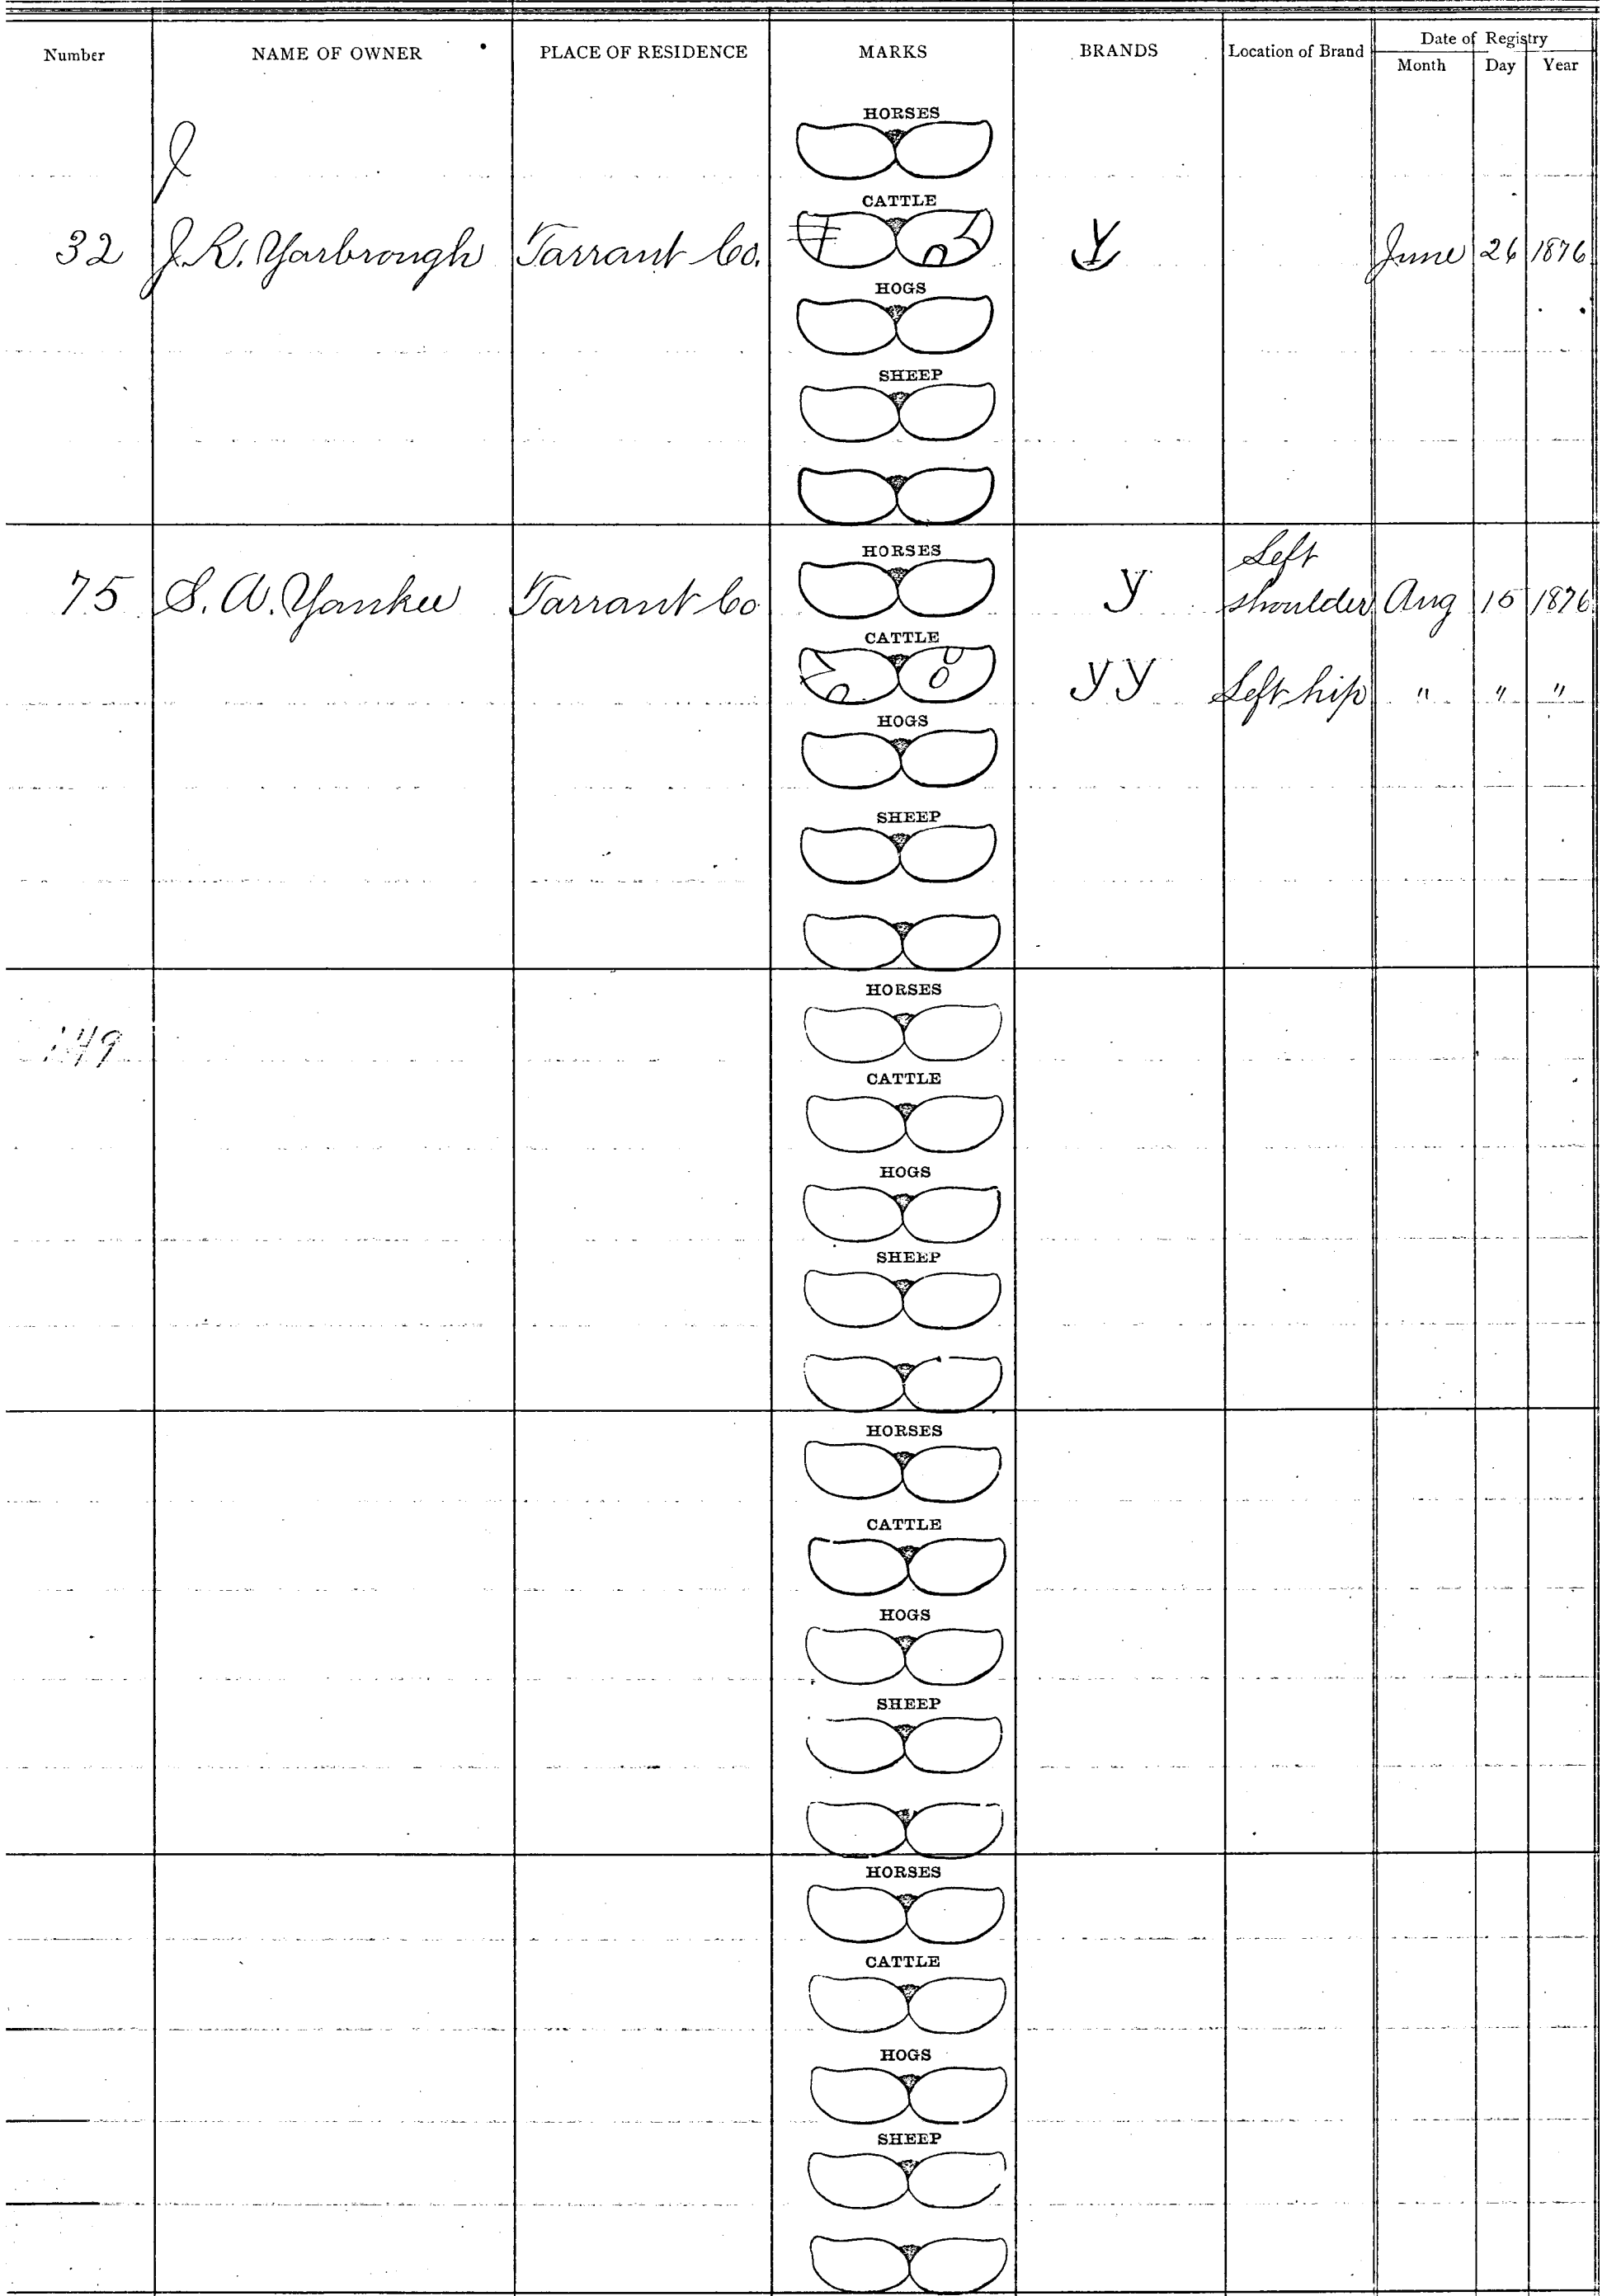 Number NAME OF OWNER PLACE OF RESIDENCE MARKS BRANDS Location of Brand Date of Registry
Month Day Year
HORSES
J
CATTLE
32 J. R. Yarbrough Tarrant Co. Y June 26 1876
HOGS
SHEEP
HORSES
Left
75 S. A. Yankee Tarrant Co y shoulder Aug 15 1876
CATTLE
yy Left hip " " "
HOGS
SHEEP
HORSES
149
CATTLE
HOGS
SHEEP
HORSES
CATTLE
HOGS
SHEEP
HORSES
CATTLE
HOGS
SHEEP